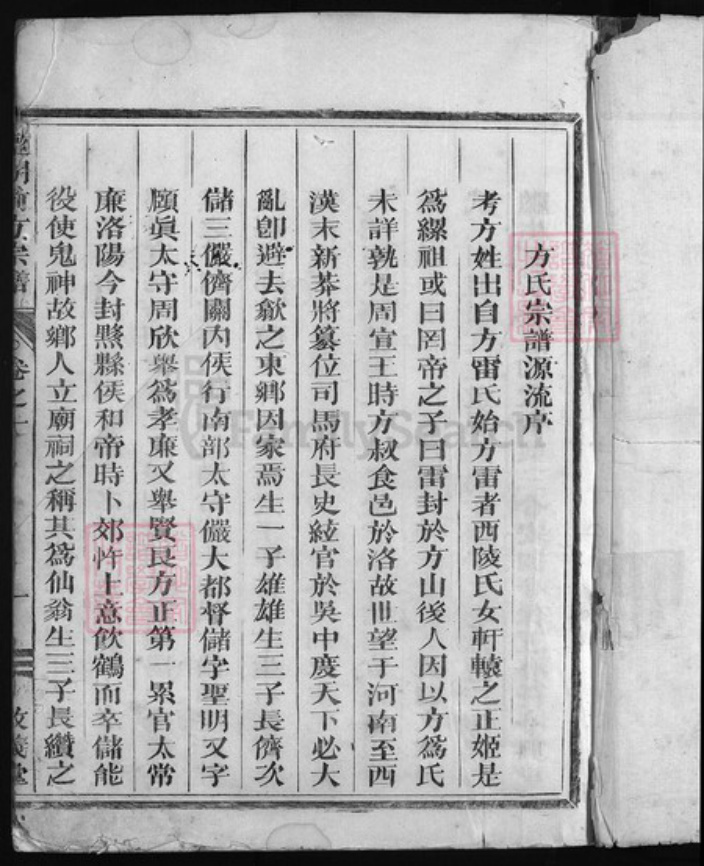 方氏宗譜源流序
考方姓出自方雷氏始方雷者西陵氏女軒轅之正姬是
為縲祖或曰罔帝之子曰雷封於方山後人因以方爲氏
未詳孰是周宣王時方叔食邑於洛故世望于河南至西
漢末新莽將篡位司馬府長史紘官於吳中度天下必大
亂卽避去歙之東鄉因家焉生一子雄雄生三子長儕次
儲三儼儕關內侯行南部太守儼大都督儲字聖明又字
頤眞太守周欣舉爲孝廉又舉賢良方正第一累官太常
廉洛陽令封黟縣侯和帝時卜郊忤上意飲鶴而卒儲能
役使鬼神故鄉人立廟祠之稱其爲仙翁生三子長纘之
方宗譜
卷之
一
堂
FamilySearch